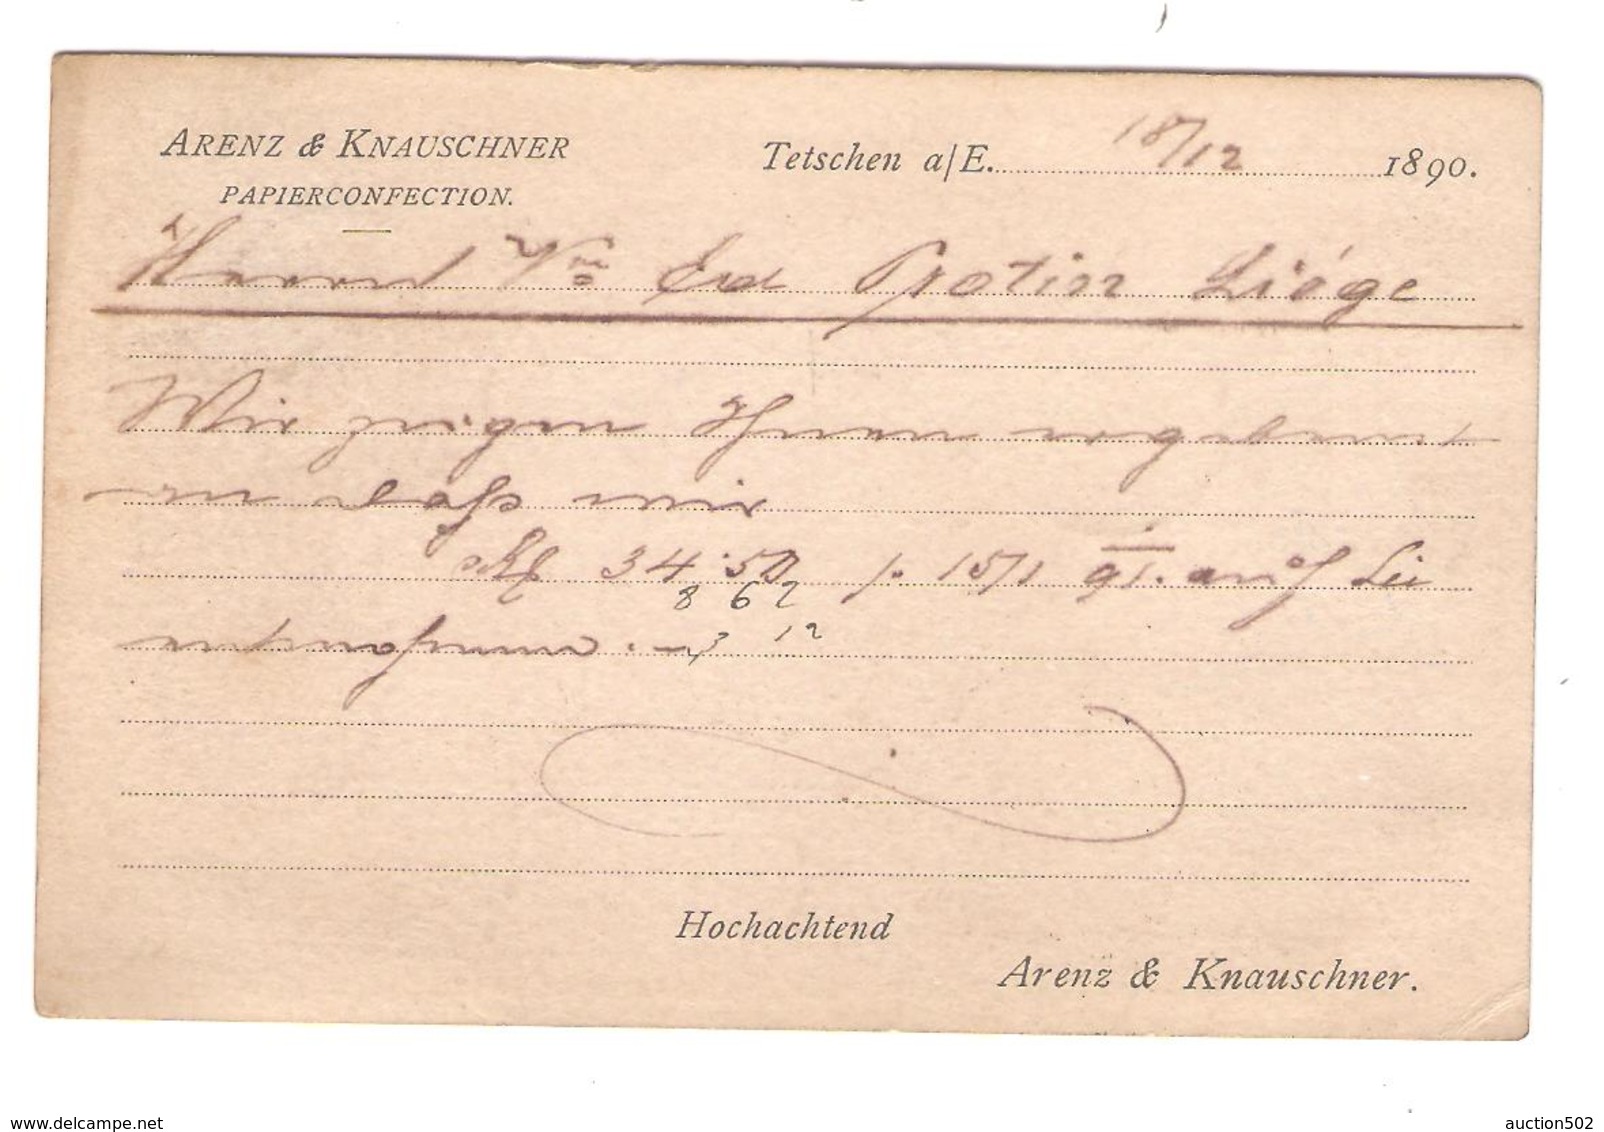 ARENZ & KNAUSCHNER
PAPIERCONFECTION.
Tetschen a/E. 18/12 1890.
Ed Liége
Wir zeigen Ihnen ergebenst
an daß wir
34.50 p. 15/1 91. auf Sie
8 62
entnehmen. 12
Hochachtend
Arenz & Knauschner.
www.delcampe.net
auction502